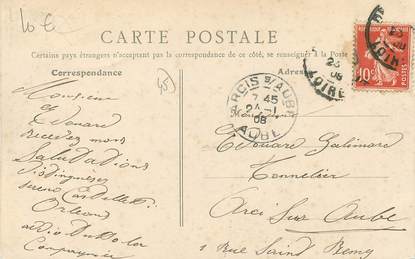 10 €
CARTE POSTALE
Certains pays étrangers n'acceptant pas la correspondance de ce côté, se renseigner à la Poste
Correspondance
Adresse
45
ARCIS S/AUBE
7 45
24 -1
08
AUBE
23
08
LOIRET
10
Monsieur
Edouard
recevez mes
Saludations
distinguées
Orleans
Compagnie
Monsieur
Edouard Galimard
Tonnelier
Arcis Sur Aube
1 Rue Saint Remy